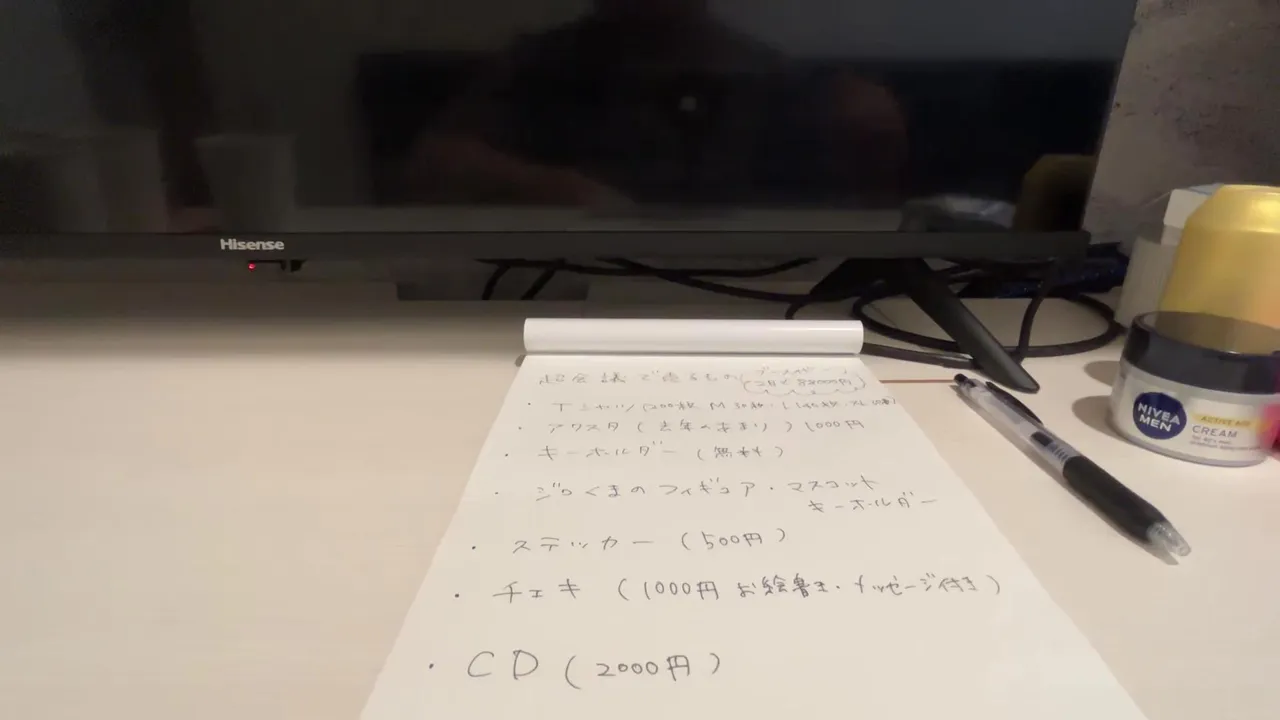 Hisense
超会議で売るもの(ブースメイン
2日で88000円)
・Tシャツ(200枚 M 30枚・L 140枚・XL
・アクスタ(去年のあまり)1000円
・キーホルダー(無料)
・ジロくまのフィギュア・マスコット
キーホルダー
・ステッカー(500円)
・チェキ(1000円 お絵書き・メッセージ付き)
・CD(2000円)
NIVEA
MEN
ACTIVE AGE
CREAM